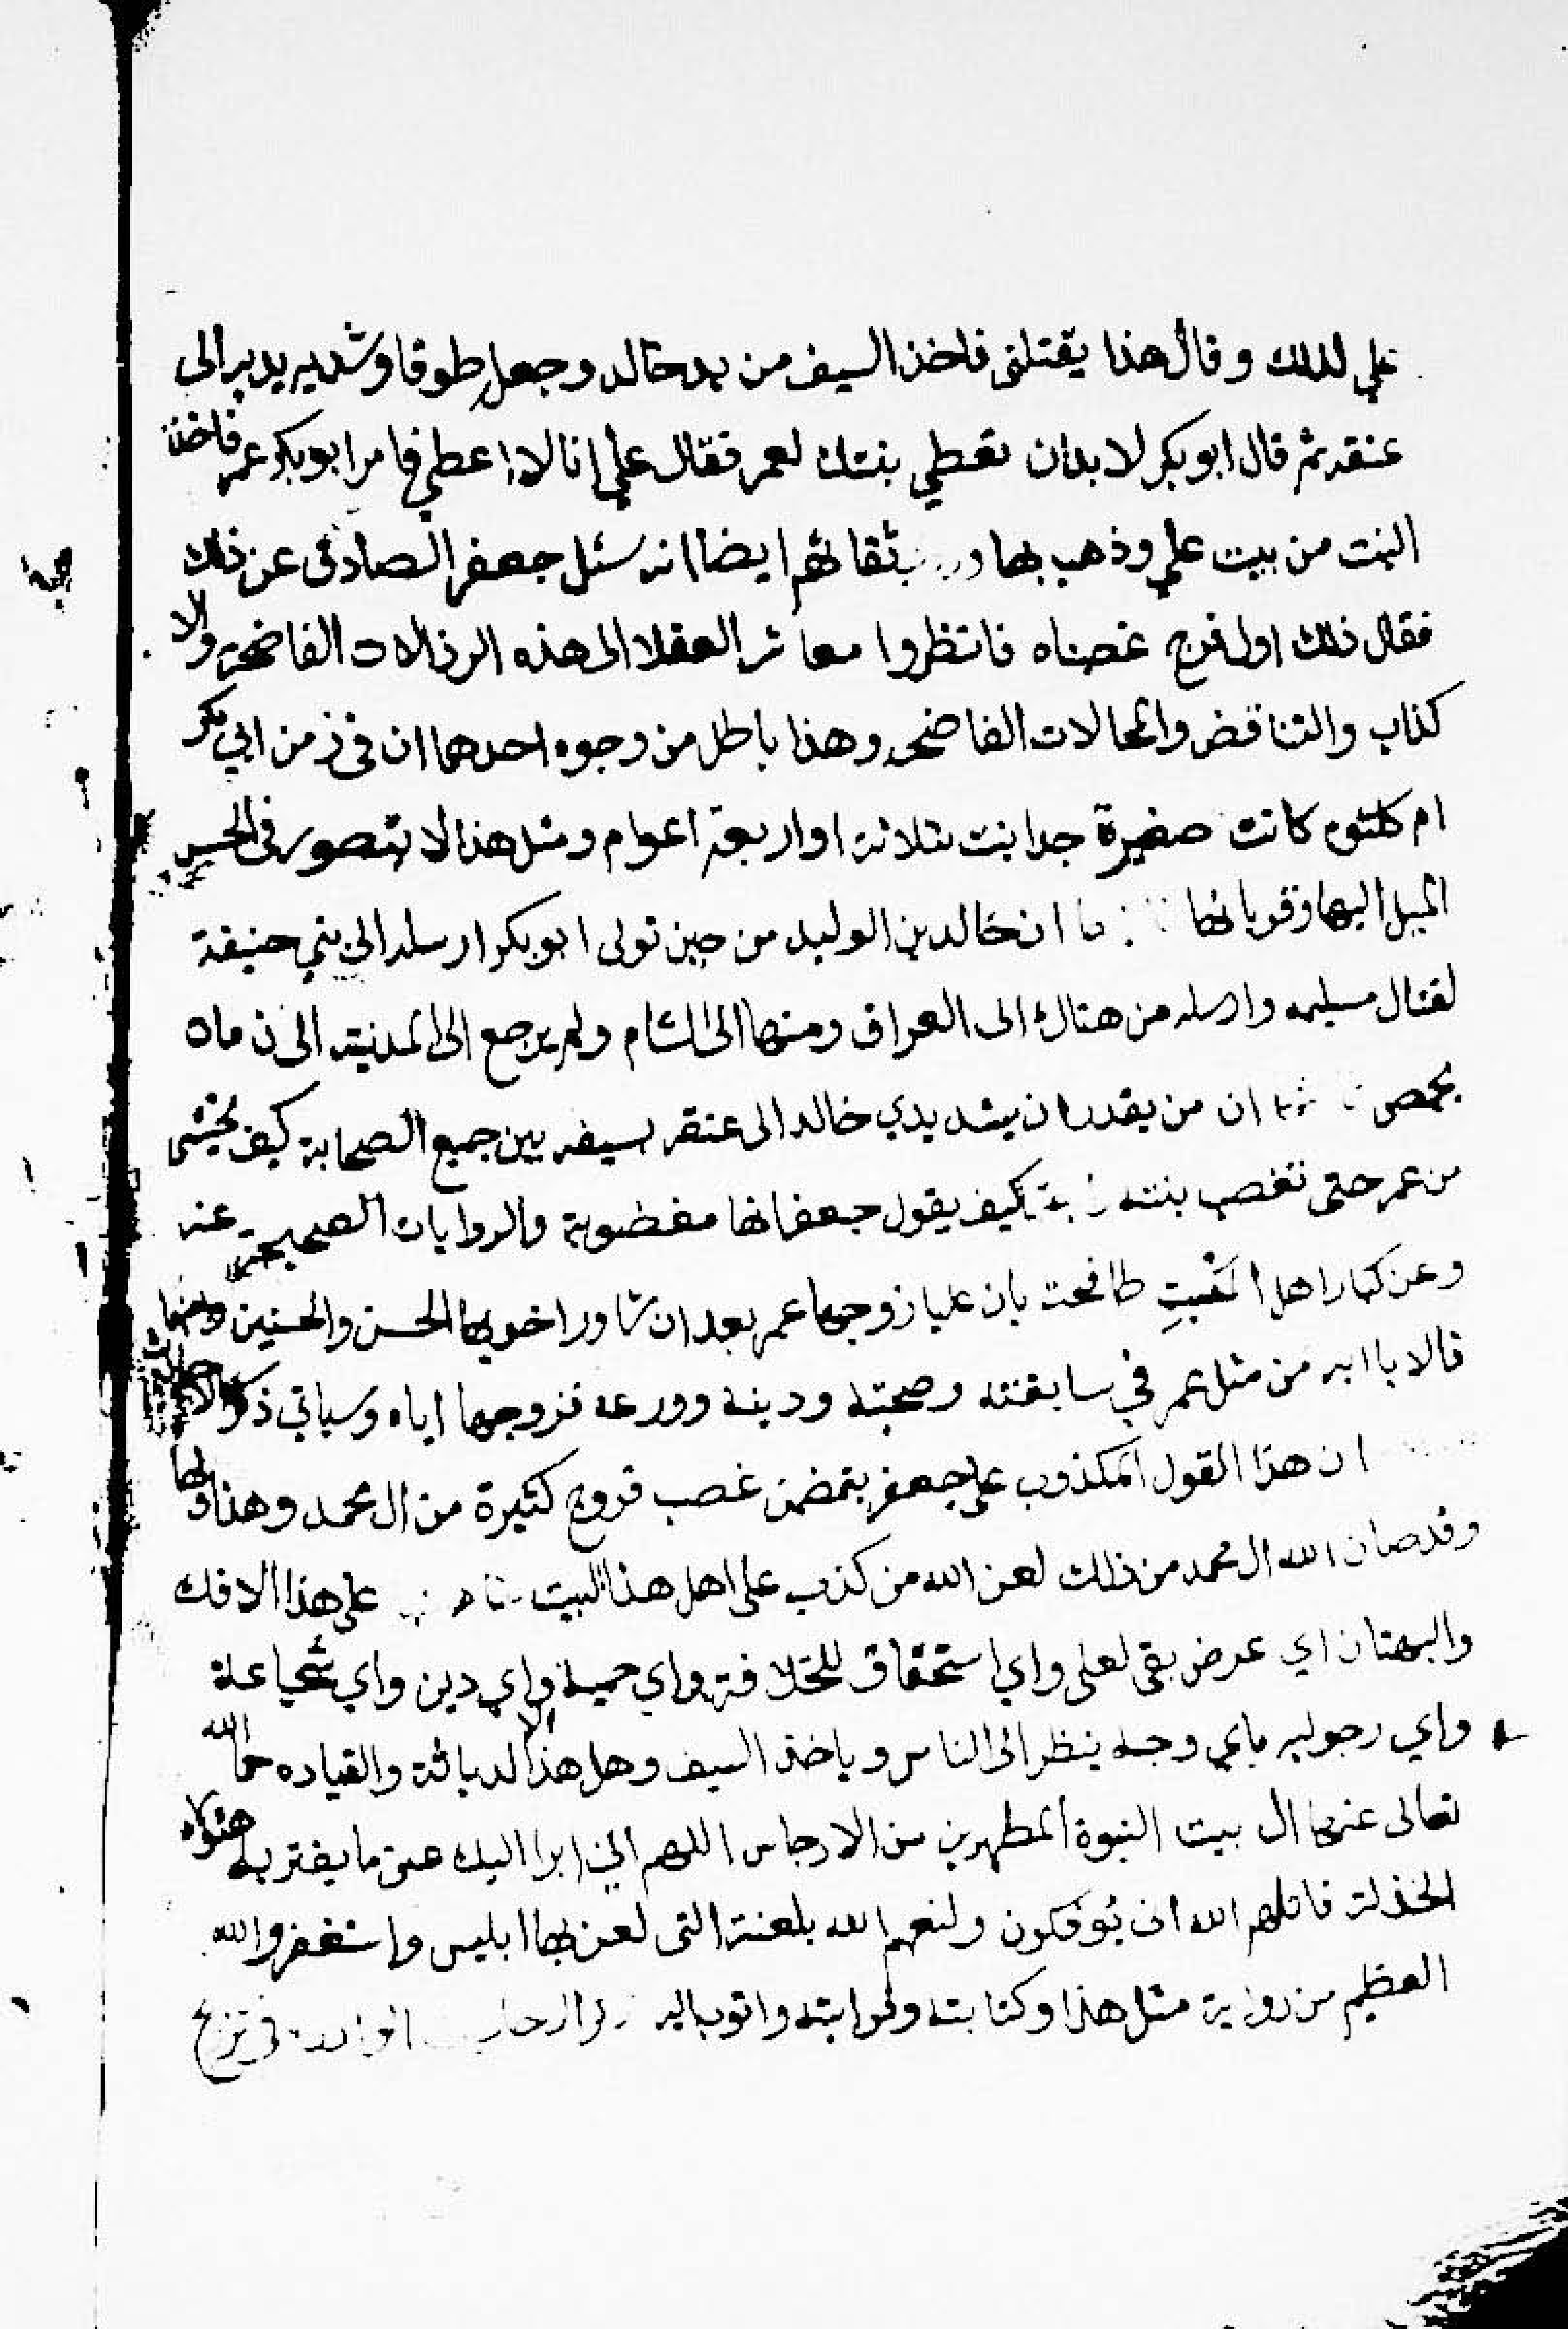 علي لذلك وقال هذا يقتلني فاخذ السيف من يد خالد وجعله طوقا وشد به يديه الى
عنقه ثم قال ابو بكر لا بد ان تعطي بنتك لعمر فقال علي انا لا اعطي فامر ابو بكر عمر فاخذ
البنت من بيت علي وذهب بها ثقاتهم ايضا انه سئل جعفر الصادق عن ذلك
فقال ذلك اول فرج غصبناه فانظروا معاشر العقلا الى هذه الرذالات الفاضحة والا
كذاب والتناقض والمحالات الفاضحه وهذا باطل من وجوه احدها ان في زمن ابي بكر
ام كلثوم كانت صغيرة جدا بنت ثلاثة او اربعة اعوام ومثل هذا لا يتصور في الحس
الميل اليها وقربانها ان خالد بن الوليد من حين تولى ابو بكر ارسله الى بني حنيفة
لقتال مسيلمه وارسله من هناك الى العراق ومنها الى الشام ولم يرجع الى المدينة الى ان مات
بحمص ان من يقدر ان يشد يدي خالد الى عنقه بسيفه بين جميع الصحابة كيف يخشى
من عمر حتى تغصب بنته كيف يقول جعفر انها مغضوبة والروايات الصحيحة عنه
وعن كبار اهل البيت طافحت بان عليا زوجها عمر بعد ان شاور اخويها الحسن والحسين وانهما
قالا يا ابه من مثل عمر في سابقته وصحبته ودينه وورعه فزوجها اياه وسياتي ذكر
ان هذا القول المكذوب على جعفر يتضمن غصب فروج كثيرة من ال محمد وهذا اولها
وقد صان الله ال محمد من ذلك لعن الله من كذب على اهل هذا البيت على هذا الافك
والبهتان اي عرض بقي لعلي واي استحقاق للخلافة واي حمية واي دين واي شجاعة
واي رجوليه باي وجه ينظر الى الناس وياخذ السيف وهل هذا الا الدياثة والقياده حما الله
تعالى عنها ال بيت النبوة المطهرين من الارجاس اللهم اني ابرا اليك عن ما يفتريه هؤلاء
الخذلة قاتلهم الله انى يؤفكون ولعنهم الله بلعنة التي لعن بها ابليس واستغفر الله
العظيم من رواية مثل هذا وكتابته وقرايته واتوب اليه في تزوج